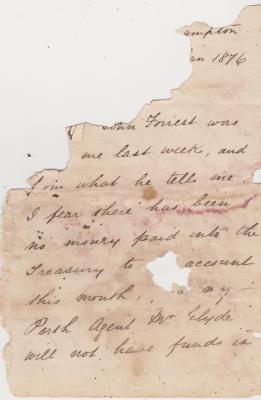 ampton
an 1876
John Forrest was
me last week, and
from what he tells me
I fear there has been
no money paid into the
Treasury to account
this month, my
Perth Agent Mr Clyde
will not have funds in